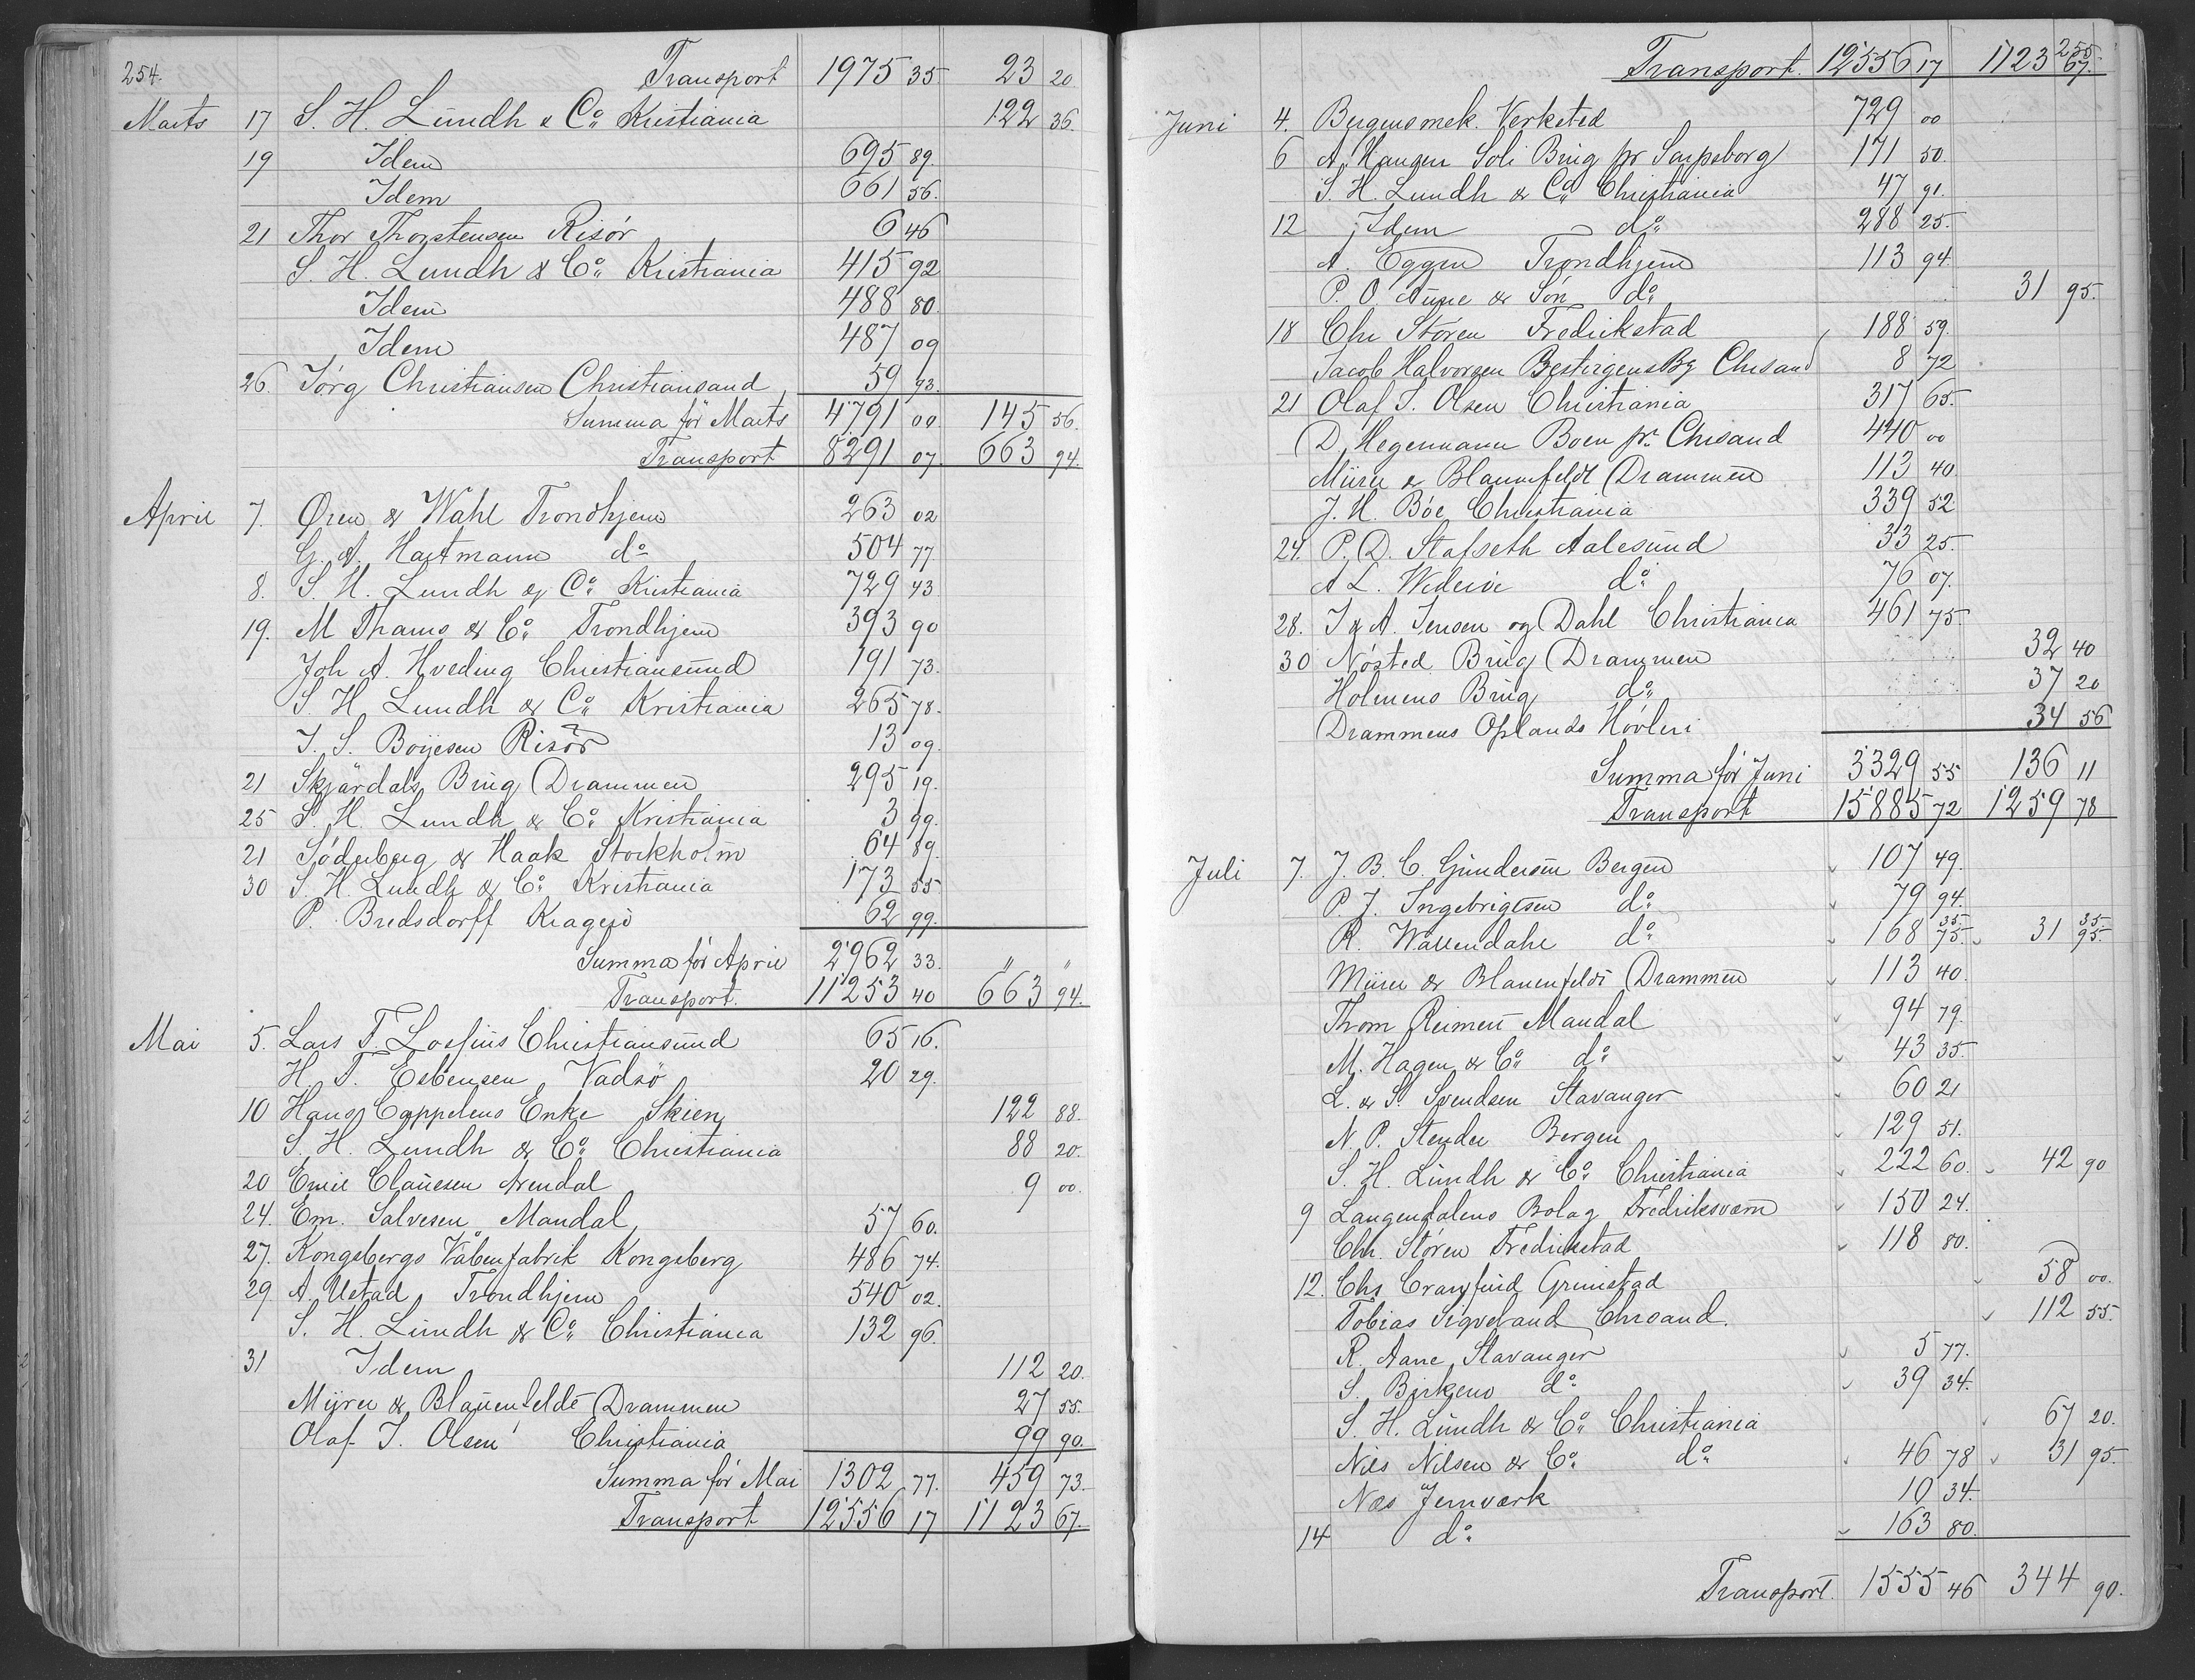 254.
Transport 1975 35 23 20
Marts 17 S. H. Lundh & Co. Kristiania 122 36.
19 Idem 695 89.
Idem 661 56.
21 Thor Thorstensen Risör 6 46
S. H. Lundh & Co. Kristiania 415 92
Idem 488 80.
Idem 487 09
26. Jörg Christiansen Christiansand 59 93.
Summa för Marts 4791 00. 145 56.
Transport 8291 07. 663 94.
April 7. Øren & Wahl Trondhjem 263 02
G. A. Hartmann do 504 77
8. S. H. Lundh & Co. Kristiania 729 43
19. M Thams & Co. Trondhjem 393 90
Joh A. Hveding Christiansund 191 73.
S. H. Lundh & Co. Kristiania 265 78.
J. S. Boyesen Risör 13 09.
21 Skjärdals Brug Drammen 295 19.
25 S. H. Lundh & Co. Kristiania 3 99.
21 Söderberg & Haak Stockholm 64 89.
30 S. H. Lundh & Co. Kristiania 173 55
P. Bredsdorff Kragerö 62 99.
Summa för April 2962 33. " "
Transport. 11253 40 663 94.
Mai 5. Lars T. Loefius Christiansund 65 16.
H. T. Esbensen Vadsö 20 29.
10 Hans Cappelens Enke Skien 122 88.
S. H. Lundh & Co. Christiania 88 20.
20 Emil Clauesen Arendal 9 00.
24. Em. Salvesen Mandal 57 60.
27. Kongsbergs Våbenfabrik Kongsberg 486 74.
29 A. Ustad Trondhjem 540 02.
S. H. Lundh & Co. Christiania 132 96.
31 Idem 112 20.
Myren & Blauenfeldt Drammen 27 55.
Olaf J. Olsen Christiania 99 90.
Summa för Mai 1302 77. 459 73.
Transport 12556 17 1123 67.
255.
Transport. 12556 17 1123 67.
Juni 4. Bergens mek. Verksted 729 00
6 A. Haugen Soli Brug pr Sarpsborg 171 50.
S. H. Lundh & Co Christiania 47 91.
12 Idem do. 288 25.
A. Eggen Trondhjem 113 94.
P. O. Aune & Sön do. 31 95.
18 Chr Stören Fredrikstad 188 59.
Jacob Halvorsen Chrsand 8 72
21 Olaf J. Olsen Christiania 317 65.
D. Hegermann Boen pr. Chrsand 440 00
& Blauenfeldt Drammen 113 40.
J. H. Böe Christiania 339 52
24. P. D. Stafseth Aalesund 33 25.
A L. do. 76 07.
28. J & A. Jensen og Dahl Christiania 461 75.
30 Nösted Brug Drammen 32 40
Holmens Brug do. 37 20
Drammens Oplands Hövleri 34 56
Summa för Juni 3329 55 136 11
Transport 15885 72 1259 78
Juli 7. J. B. C. Gundersen Bergen 107 49.
P. J. Ingebrigtsen do. 79 94.
R. Wallendahl do. 168 35 75. 31 35 95.
& Blauenfeldt Drammen 113 40.
Thom Reimert Mandal 94 79.
M. Hagen & Co. do. 43 35.
L. & S. Svendsen Stavanger 60 21
N. P. Stender Bergen 129 51.
S. H. Lundh & Co. Christiania 222 60. 42 90
9 Langendalens Bolag Fredriksværn 150 24.
Chr. Stören Fredrikstad 118 80.
12. Chs Cranfurd Grimstad 58 00.
Tobias Sigveland Chrsand. 112 55.
R. Aane Stavanger 5 77.
S. Birkens do. 39 34.
S. H. Lundh & Co. Christiania 67 20.
Nils Nilsen & Co. do. 46 78 31 95.
Nes Jernværk 10 34.
14 do. 163 80.
Transport. 1555 46 344 90.